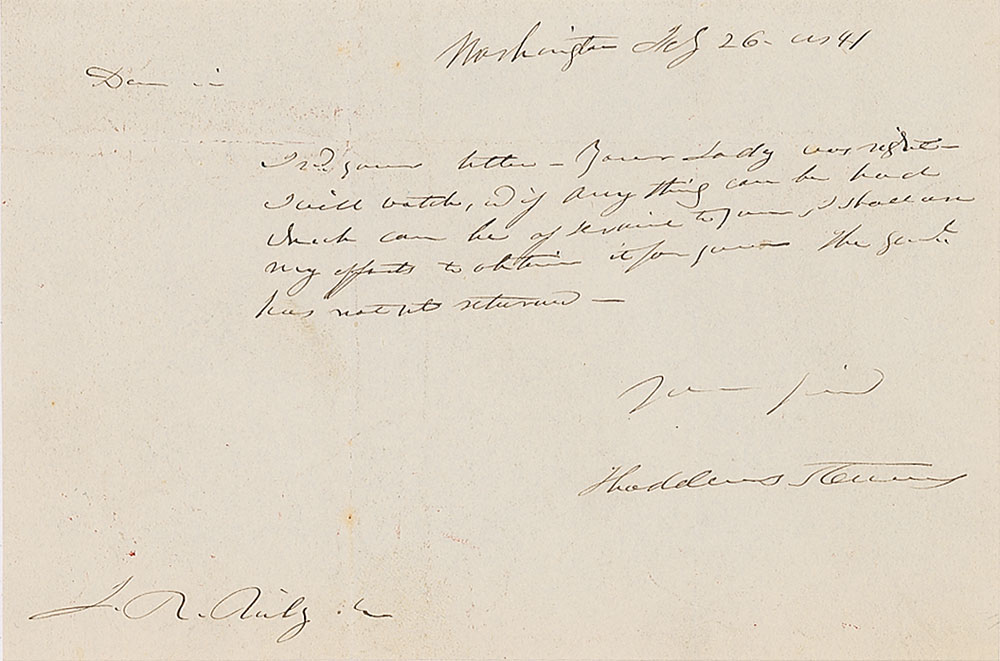 Washington Feb 26. 1841
Dear sir
I recd your letter – Your Lady was right –
I will watch, & if any thing can be had
which can be of service to you, I shall use
my efforts to obtain it for you. The
has not yet returned –
Your friend
Thaddeus Stevens
J. R.